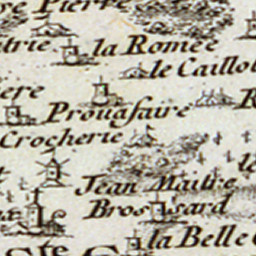 Pierre
trie la Romée
le Caillo
ere
Prouasaire R
Crocherie
le
Jean Maitre
Brossard
la Belle
Ste